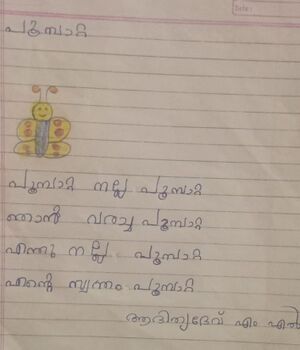 Date :
പൂമ്പാറ്റ
പൂമ്പാറ്റ നല്ല പൂമ്പാറ്റ
ഞാൻ വരച്ച പൂമ്പാറ്റ
എന്തു നല്ല പൂമ്പാറ്റ
എന്റെ സ്വന്തം പൂമ്പാറ്റ
ആദിത്യദേവ് എം എൽ